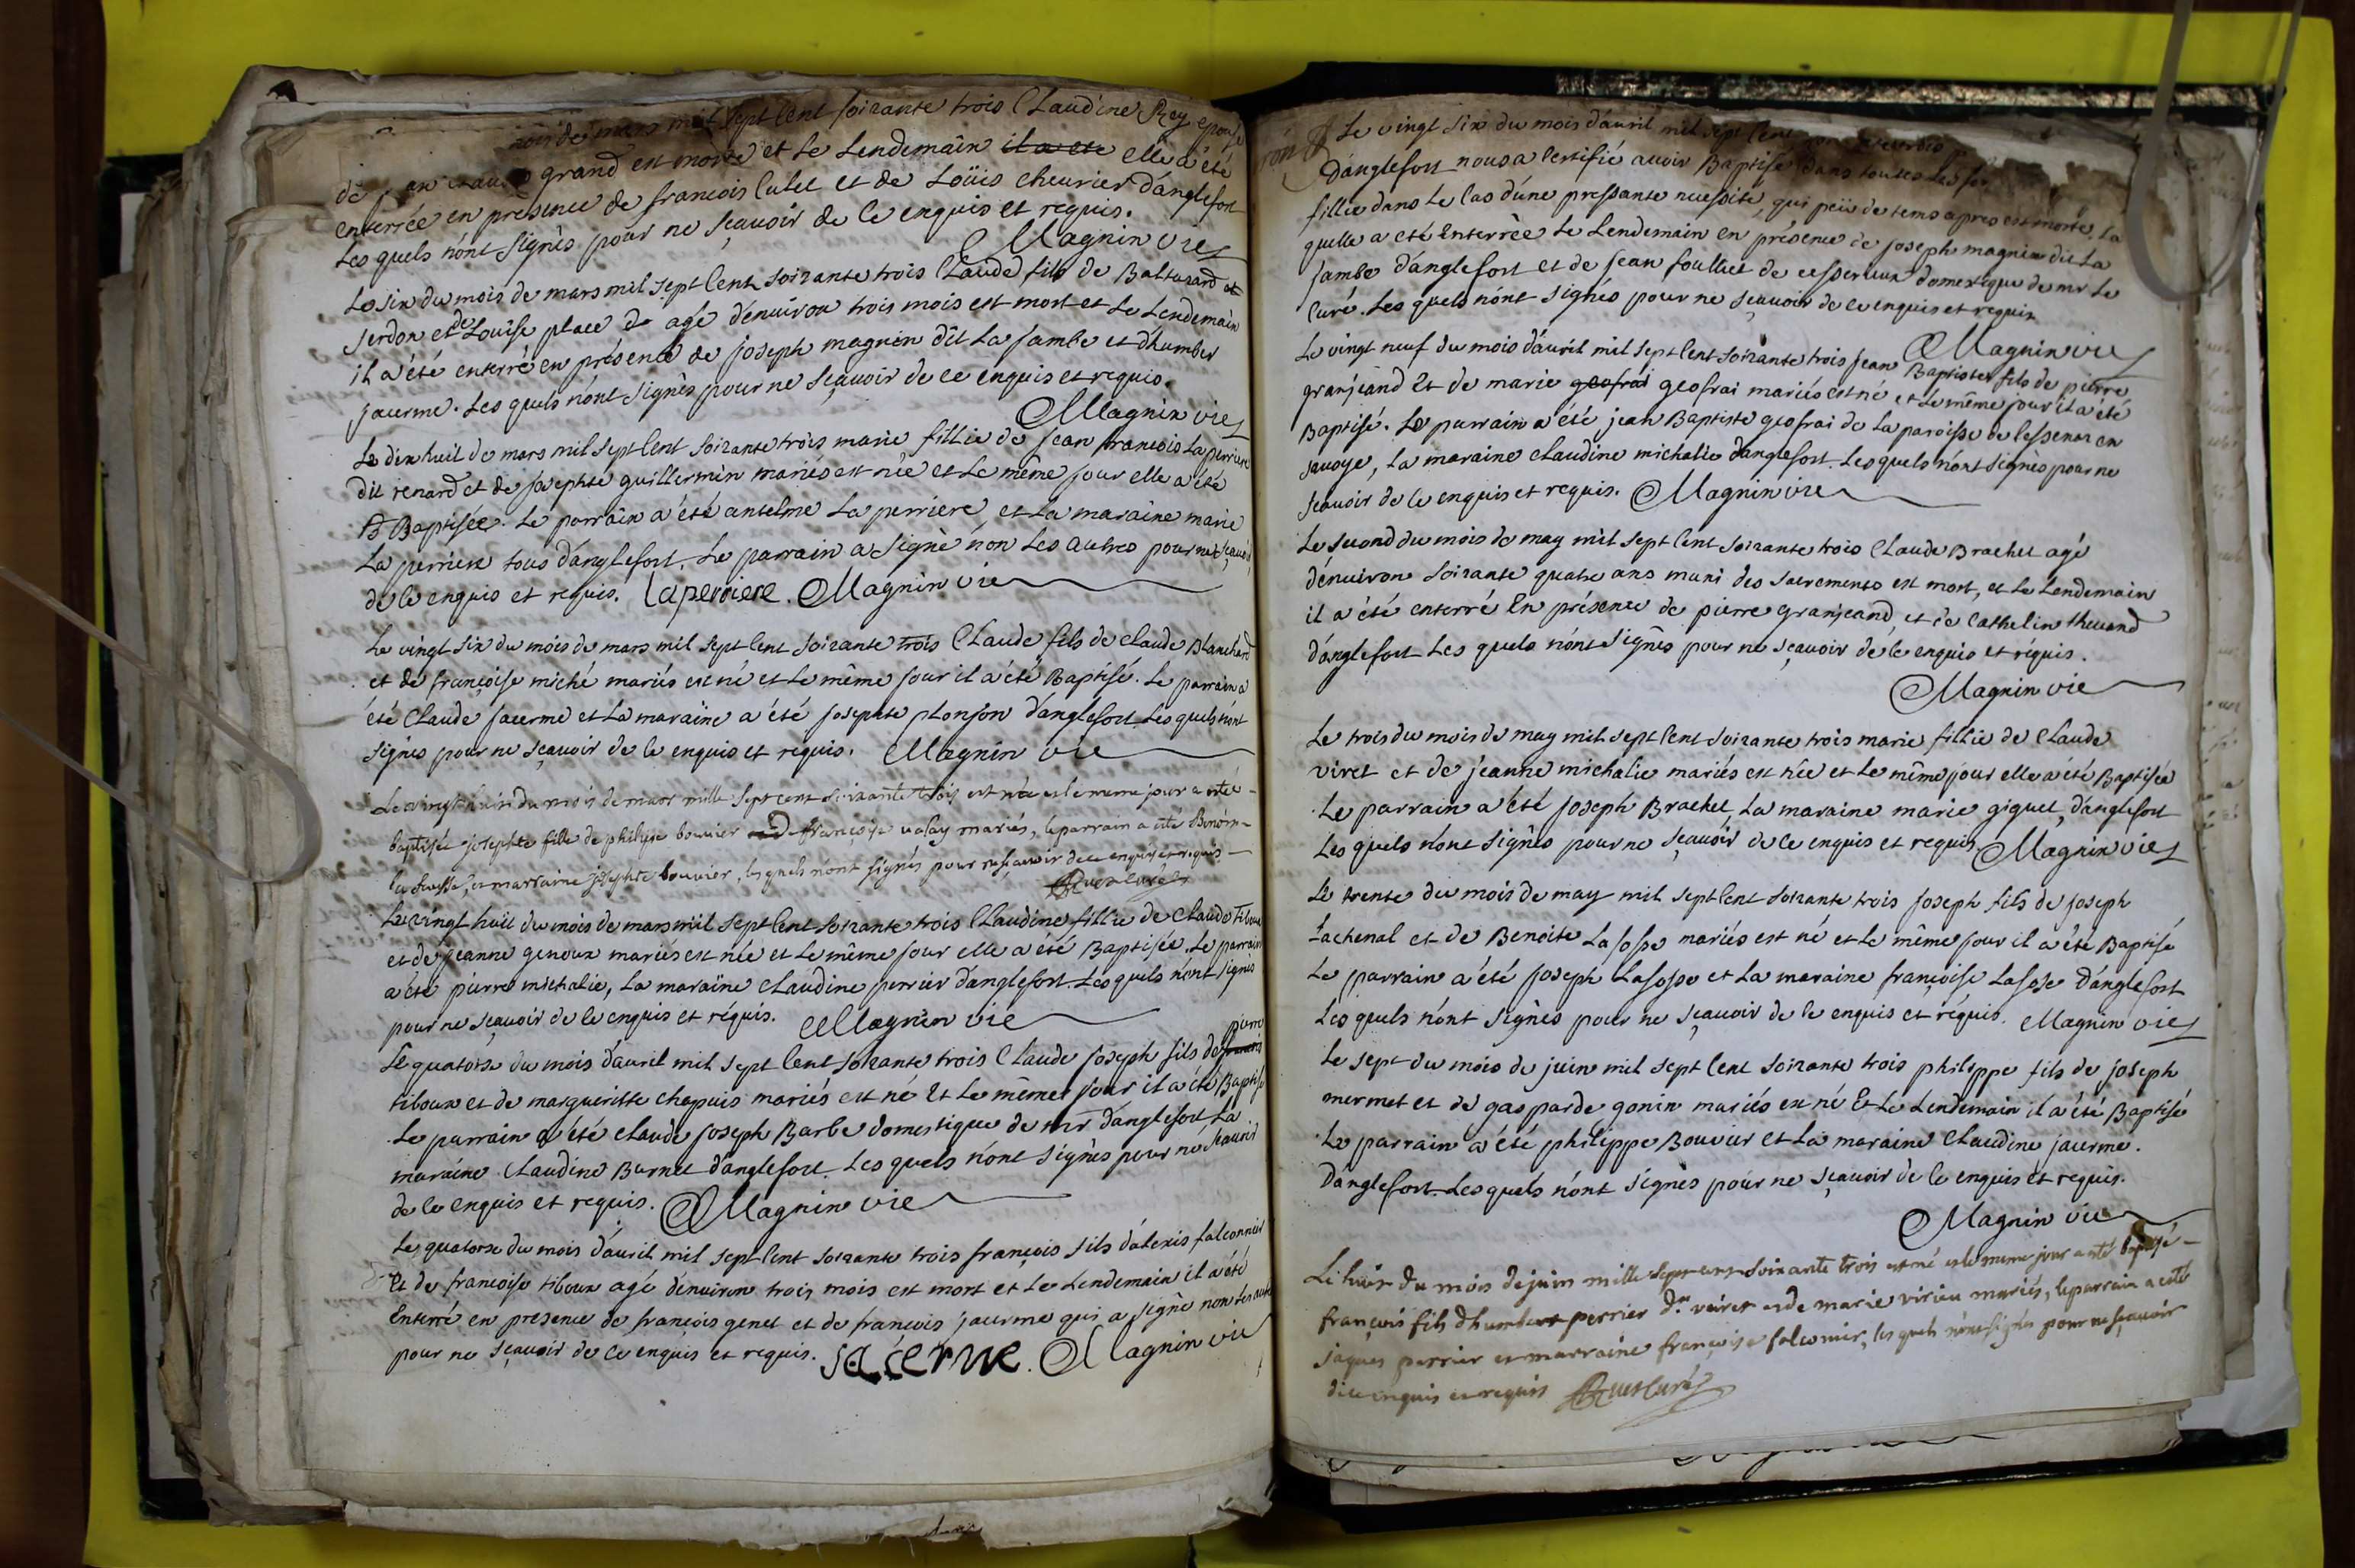 mois de mars mil sept Cent soizante trois Claudine Rey epouse
de grand est morte et le Lendemain il a ete elle a été
enterrée en présence de francois Cutet et de Loüis cheurier d'anglefort
Les quels n'ont signès pour ne sçauoir de Ce enquis et requis.
Magnin vic
Le six du mois de mars mil sept Cent soizante trois Claude fils de Baltazard et
serdon et de Loüise place agé d'enuiron trois mois est mort et Le Lendemain
il a été enterré en présence de joseph magnin dit La jambe et d'humber
jacerme. Les quels n'ont signès pour ne sçauoir de ce enquis et requis.
Magnin vic
Le dix huit de mars mil sept Cent soizante trois marie fillie de jean francois La perriere
dit renard et de josephte guillermin mariés est née et le même jour elle a été
Baptisée. Le parrain a été antelme La perriere et La maraine marie
La perriere tous d'anglefort. Le parrain a signè non Les autres pour ne sçauoir
de Ce enquis et requis. laperriere. Magnin vic
Le vingt six du mois de mars mil sept Cent soizante trois Claude fils de Claude Blanchard
et de françoise miché mariés est né et Le même jour il a été Baptisé. Le parrain a
été Claude jacerme et La maraine a été josephte plonjon d'anglefort Les quels n'ont
signès pour ne sçauoir de Ce enquis et requis. Magnin vic
Le vingt huit du mois de mars mille sept cent soixante trois est née et le meme jour a eté
baptisée josephte fille de philipe bouvier et de françoise valay mariés, le parrain a eté Benoin
la susse, et marraine josephte bouvier, les quels n'ont signés pour ne sçavoir de ce enquis et requis
curé
Le vingt huit du mois de mars mil sept Cent soizante trois Claudine fillie de Claude tiboux
et de jeanne genoux mariés est née et Le même jour elle a été Baptisée. Le parrain
a été pierre michalie, La maraine Claudine perrier d'anglefort. Les quels n'ont signès
pour ne sçauoir de Ce enquis et réquis. Magnin vic
pierre
Le quatorse du mois d'auril mil sept Cent soizante trois Claude joseph fils de francois
tiboux et de margueritte chapuis mariés est né Et Le même jour il a été Baptisé
Le parrain a été Claude joseph Barbe domestique de mr d'anglefort La
maraine Claudine Burnet d'anglefort Les quels n'ont signès pour ne sçauoir
de Ce enquis et requis. Magnin vic
Le quatorse du mois d'auril mil sept Cent soizante trois françois fils d'alexis falconnier
Et de francoise tiboux agé d'enuiron trois mois est mort et Le Lendemain il a été
Enterré en presence de françois genet et de françois jacerme qui a signè non Les autres
pour ne sçauoir de Ce enquis et requis. jacerme. Magnin vic
Le vingt six du mois d'auril mil sept Cent
d'anglefort nous a Certifié auoir Baptisé dans toutes les
fillie dans Le Cas d'une pressante necessité, qui peü de tems apres est morte. La
quelle a été Enterrèe Le Lendemain en présence de joseph magnin dit La
jambe d'anglefort et de jean foulliet de domestique de mr Le
Curé. Les quels n'ont signés pour ne sçauoir de ce enquis et requis
Magnin vic
Le vingt neuf du mois d'auril mil sept Cent soizante trois jean Baptiste fils de pierre
granjeand Et de marie geofrai geofrai mariés est né et Le même jour il a été
Baptisé. Le parrain a été jean Baptiste geofrai de La paroisse de en
sauoye, La maraine Claudine michalie d'anglefort. Les quels n'ont signès pour ne
sçauoir de Ce enquis et requis. Magnin vic
Le second du mois de may mil sept Cent soizante trois Claude Brachet agé
d'enuiron soizante quatre ans muni des sacremens est mort, et Le Lendemain
il a été enterré En présence de pierre granjeand, et de Cathelin
d'anglefort Les quels n'ont signês pour ne sçauoir de Ce enquis et réquis.
Magnin vic
Le trois du mois de may mil sept Cent soizante trois marie fillie de Claude
viret et de jeanne michalie mariés est née et Le même jour elle a été Baptisée
Le parrain a été joseph Brachet, La maraine marie giguet, d'anglefort
Les quels n'ont signès pour ne sçauoir de Ce enquis et requis. Magnin vic
Le trente du mois de may mil sept Cent soizante trois joseph fils de joseph
Lachenal et de Benoite Lasosse mariés est né et Le même jour il a été Baptisé
Le parrain a été joseph Lasosse et La maraine françoise Lasosse d'anglefort
Les quels n'ont signès pour ne sçauoir de Ce enquis et réquis. Magnin vic
Le sept du mois de juin mil sept Cent soizante trois philippe fils de joseph
mermet et de gasparde gonin mariés est né Et Le Lendemain il a été Baptisé
Le parrain a été philippe Bouvier et La maraine Claudine jacerme.
d'anglefort Les quels n'ont signès pour ne sçauoir de Ce enquis et requis.
Magnin vic
Le huit du mois de juin mille sept cent soixante trois est né et le meme jour a eté baptisé
françois fils d'humbert perrier dit veiret et de marie virieu mariés, le parrain a eté
jaques perrier et marraine françoise falconnier, les quels n'ont signés pour ne sçavoir
de ce enquis et requis curé